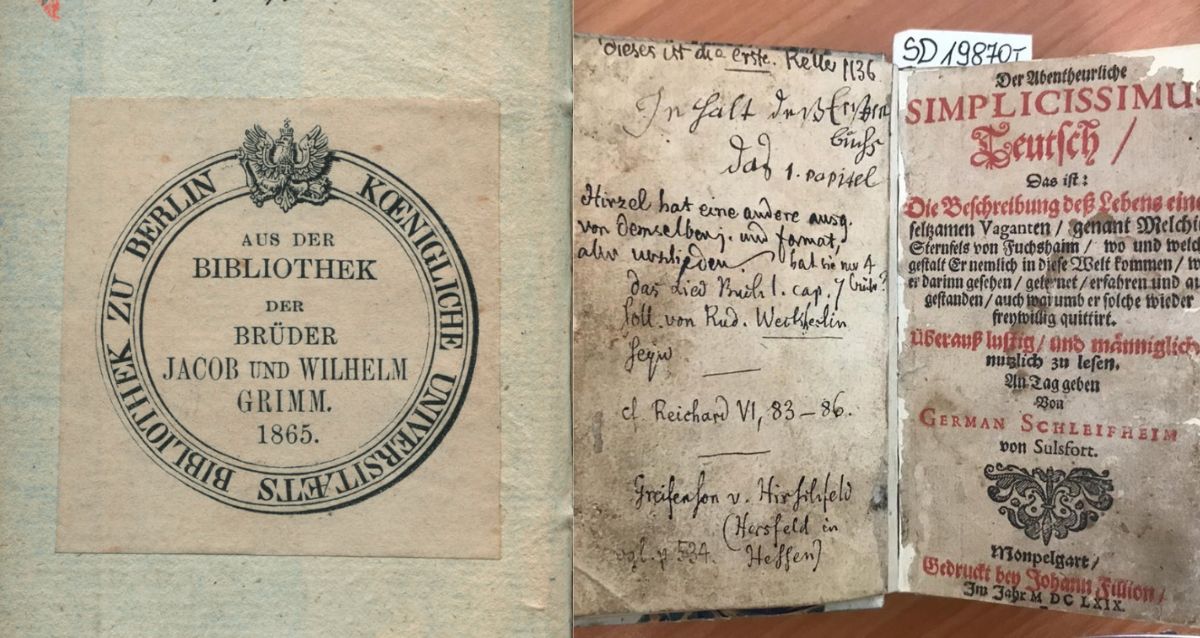 KŒNIGLICHE UNIVERSITÆTS BIBLIOTHEK ZU BERLIN
AUS DER
BIBLIOTHEK
DER
BRÜDER
JACOB UND WILHELM
GRIMM.
1865.
dieses ist die erste. Keller 1136
Inhalt deß Ersten
buchs
das 1. capitel
Hirzel hat eine andere ausg.
von demselben j. und format,
aber
hat sie nur 4
das Lied Buch 1. cap. 7
soll von Rud. Weckherlin
seyn
cf. Reichard VI, 83-86.
Greifenson v. Hirschfeld
(Hersfeld in
vgl. p 534. Hessen)
SD 19870T
Der Abentheurliche
SIMPLICISSIMUS
Teutsch /
Das ist:
Die Beschreibung deß Lebens eine
seltzamen Vaganten / genant Melchio
Sternfels von Fuchshaim / wo und welch
gestalt Er nemlich in diese Welt kommen / w
er darinn gesehen / gelernet / erfahren und au
gestanden / auch warumb er solche wieder
freywillig quittirt.
Überauß lustig / und männiglich
nutzlich zu lesen.
An Tag geben
Von
GERMAN SCHLEIFHEIM
von Sulsfort.
Monpelgart /
Gedruckt bey Johann Fillion /
Im Jahr M DC LXIX.